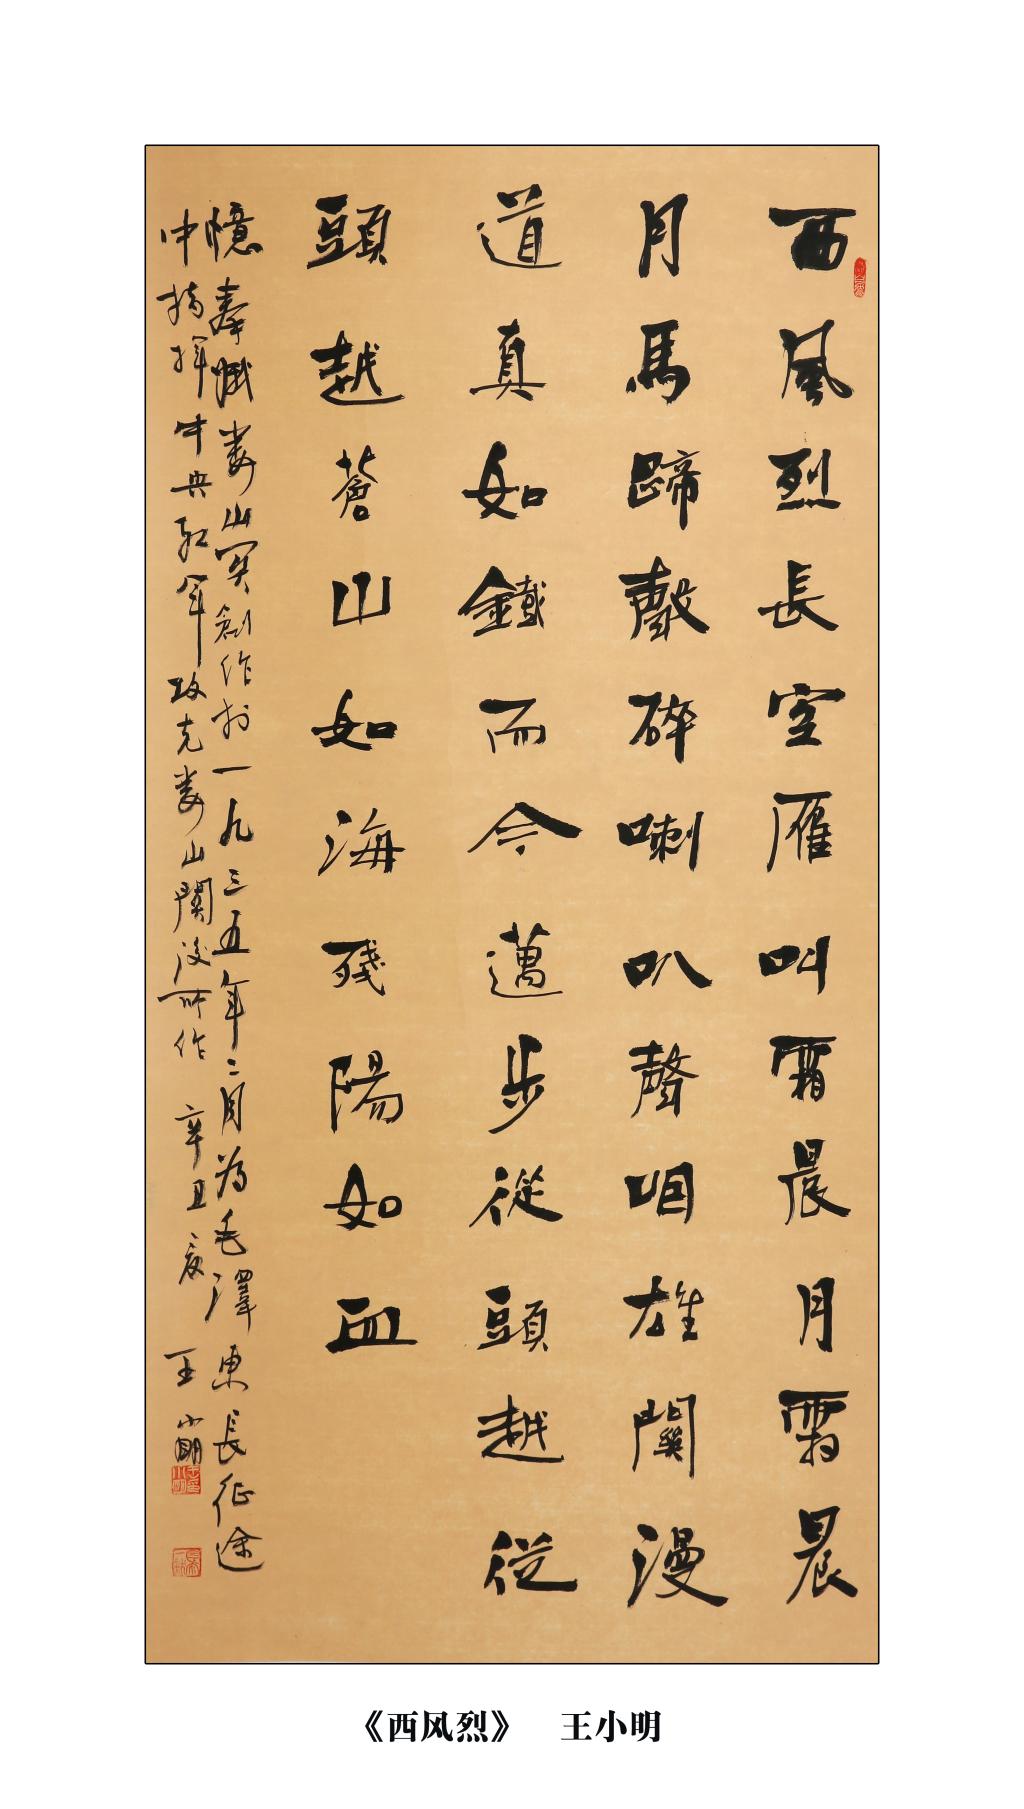 西風烈長空雁叫霜晨月霜晨
月馬蹄聲碎喇叭聲咽雄關漫
道真如鐵而今邁步從頭越從
頭越蒼山如海殘陽如血
憶秦娥娄山関創作於一九三五年二月為毛澤東長征途
中指揮中央紅軍攻克娄山關後所作 辛丑夏 王小明
《西风烈》 王小明